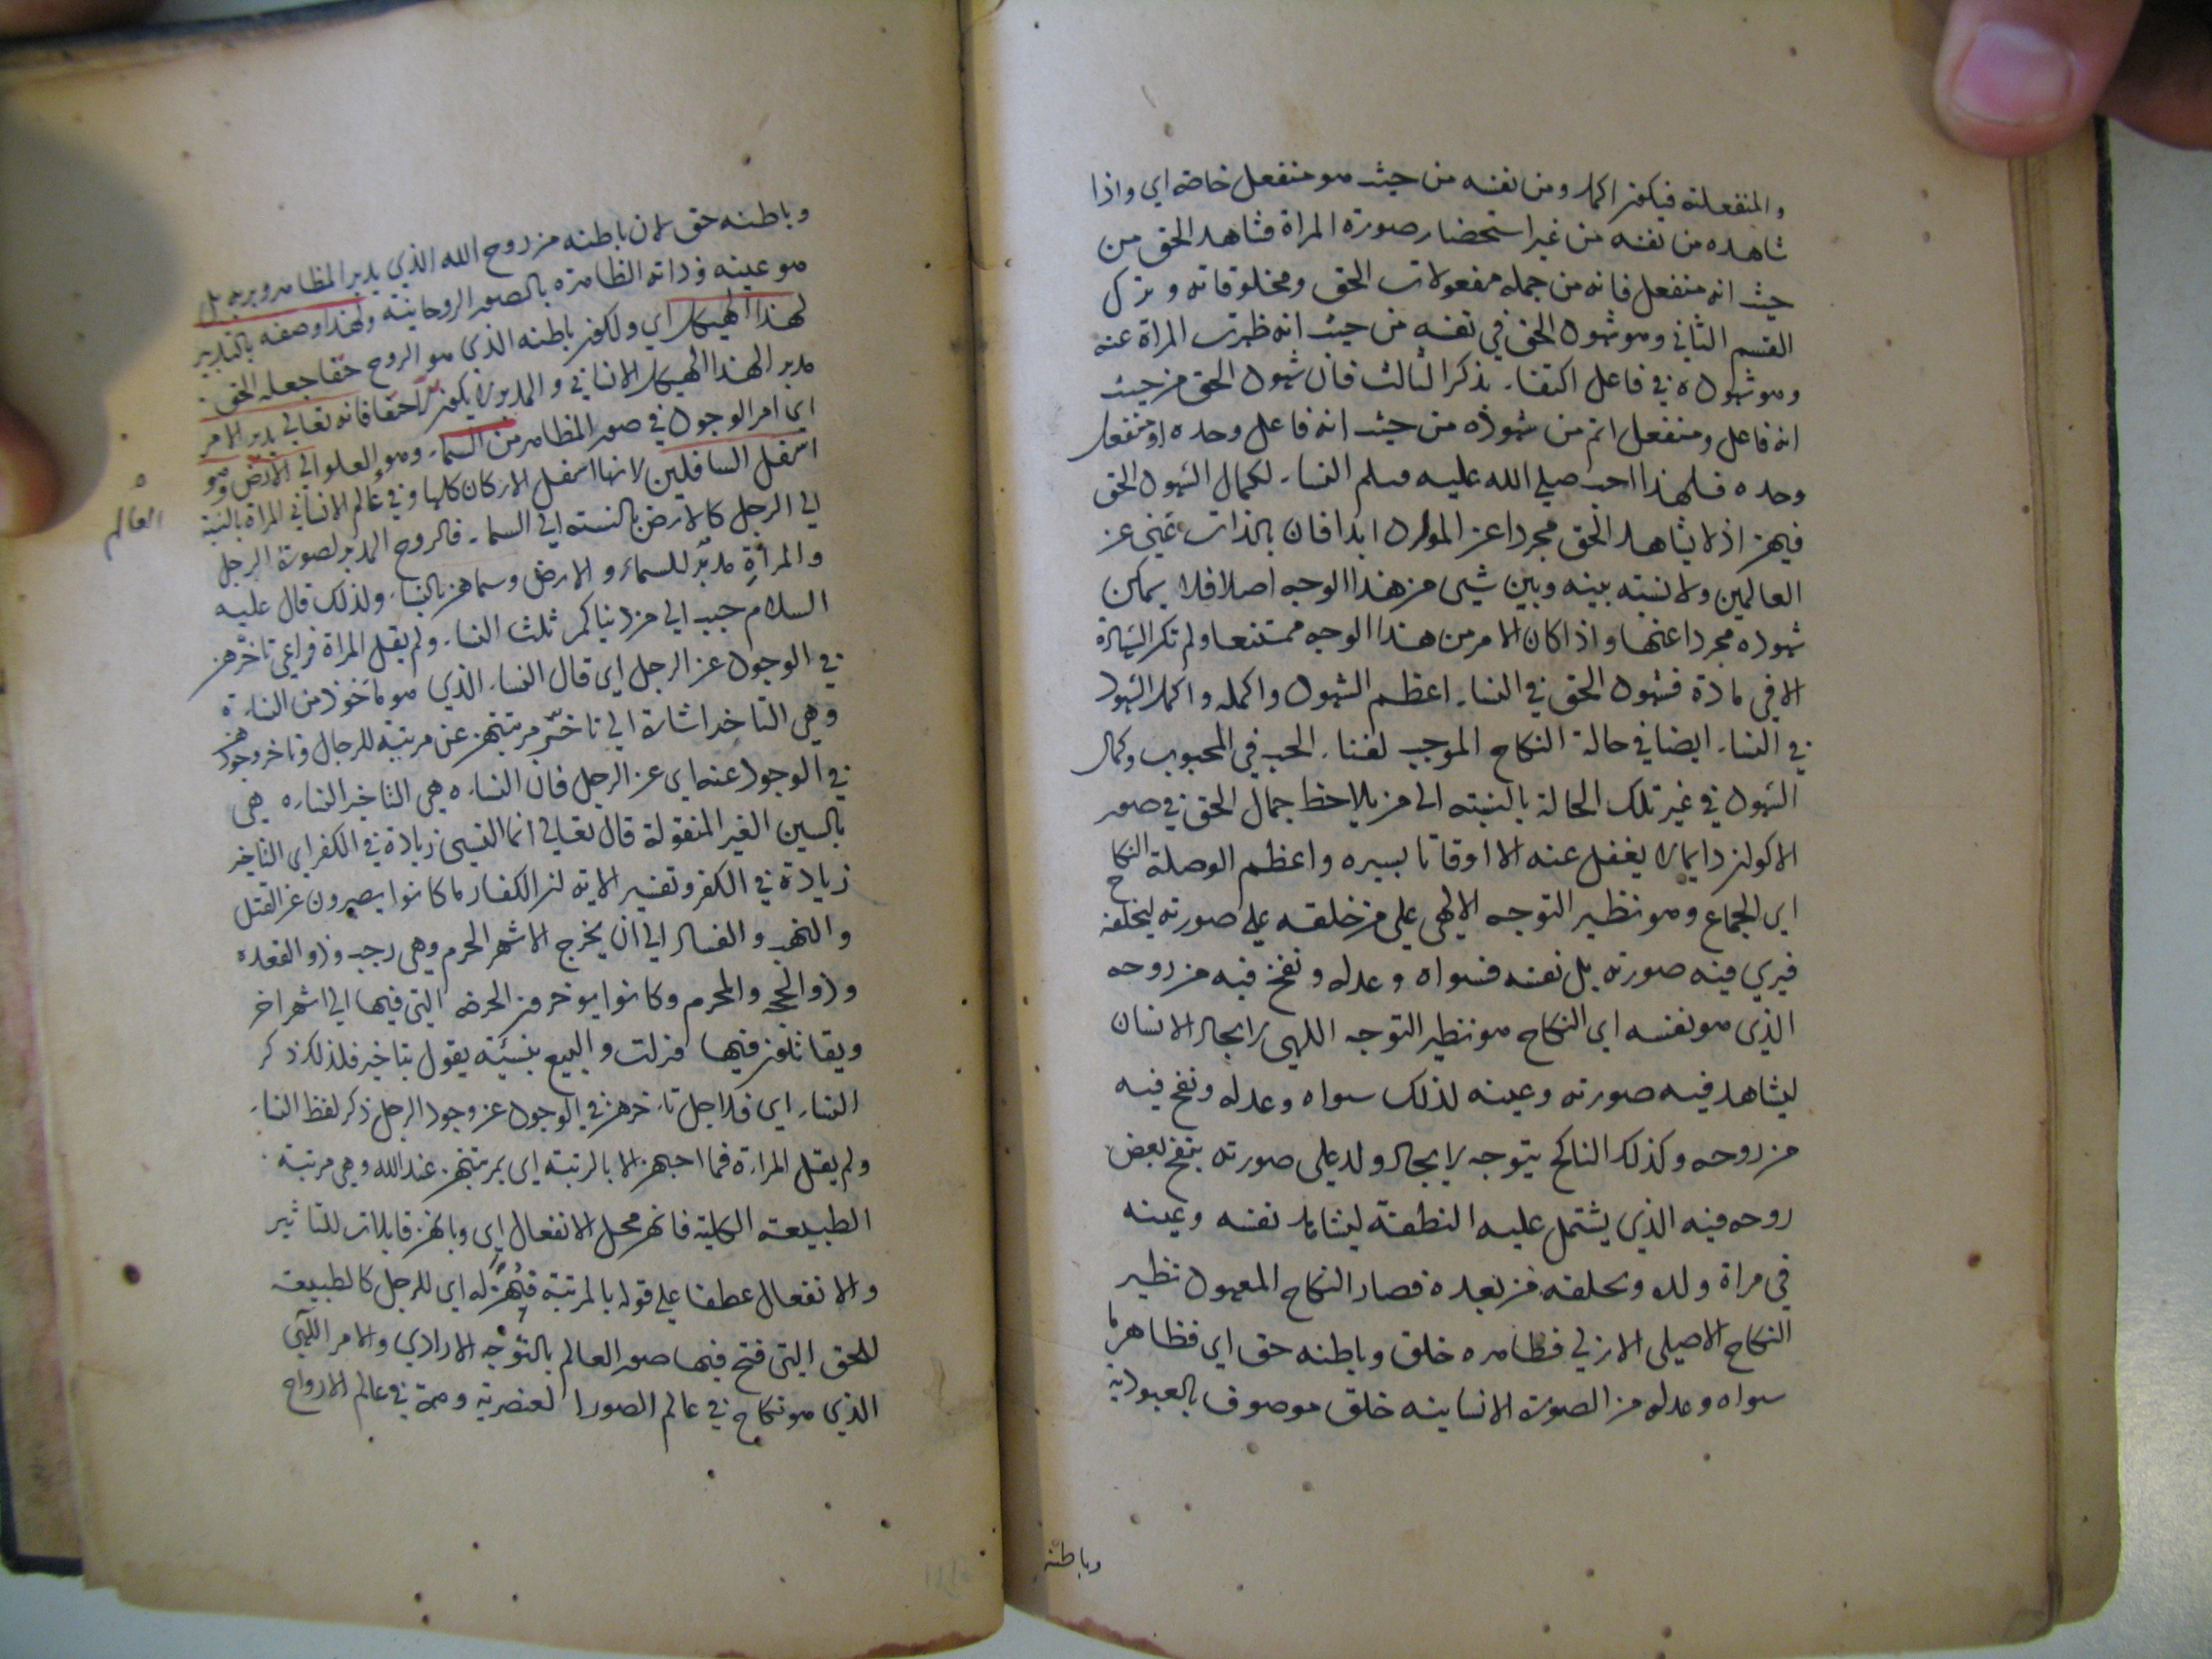 والمنفعلية فيكون اكمل ومن نفسه من حيث هو منفعل خاصة اي واذا
شاهده من نفسه من غير استحضار صورة المراة فشاهد الحق من
حيث انه منفعل فانه من جملة مفعولات الحق ومخلوقاته وترك
القسم الثاني وهو شهود الحق في نفسه من حيث انه ظهرت المراة عنه
وهو شهوده في فاعل اكتفاء بذكر الثالث فان شهود الحق من حيث
انه فاعل ومنفعل اتم من شهوده من حيث انه فاعل وحده او منفعل
وحده فلهذا احب صلي الله عليه وسلم النساء لكمال الشهود الحق
فيهن اذ لا يشاهد الحق مجردا عن المواد ابدا فان بالذات غني عن
العالمين ولا نسبته بينه وبين شيى من هذا الوجه اصلا فلا يمكن
شهوده مجردا عنها واذا كان الامر من هذا الوجه ممتنعا ولم تكن الشهادة
الا في مادة فشهود الحق في النساء اعظم الشهود واكمله واكمل الشهود
في النساء ايضا في حالة النكاح الموجب لفناء الحب في المحبوب وكمال
الشهود في غير تلك الحالة بالنسبته الي من يلاحظ جمال الحق في صور
الاكوان دايما لا يغفل عنه الا اوقاتا يسيره واعظم الوصلة النكاح
اي الجماع وهو نظير التوجه الالهي علي من خلقه علي صورته ليخلفه
فيري فيه صورته بل نفسه فسواه وعدله ونفخ فيه من روحه
الذي هو نفسه اي النكاح هو نظير التوجه اللهي لايجاد الانسان
ليشاهد فيه صورته وعينه لذلك سواه وعدله ونفخ فيه
من روحه وكذلك الناكح يتوجه لايجاد ولد علي صورته بنفخ بعض
روحه فيه الذي يشتمل عليه النطفة ليشاهد نفسه وعينه
في مراة ولده ويخلفه من بعده فصار النكاح المعهود نظير
النكاح الاصيلي الازلي فظاهره خلق وباطنه حق اي فظاهر ما
سواه وعدله من الصورة الانسانيه خلق موصوف بالعبودية
وباطنه
وباطنه حق لان باطنه من روح الله الذي يدبر المظاهر ويربه بل
هو عينه وذاته الظاهرة بالصور الروحانية ولهذا وصفه بالتدبير
لهذا الهيكل اي ولكون باطنه الذي هو الروح حقا جعله الحق
مدبر الهذا الهيكل الانساني والمدبر لا يكون الا حقا فانه تعالي يدبر الامر
اي امر الوجود في صور المظاهر من السماء وهو العلو الي الارض وهو
اسفل السافلين لانها اسفل الاركان كلها وفي عالم الانساني المراة بالنسبة
العالم
الي الرجل كالارض بالنسته الي السماء فالروح المدبر لصورة الرجل
والمراة مدبر للسماء والارض وسماهن بالنساء ولذلك قال عليه
السلام حبب الي من دنياكم ثلث النساء ولم يقل المراة فراعي تاخرهن
في الوجود عن الرجل اي قال النساء الذي هو ماخوذ من النساءة
وهي التاخر اشارة الي تاخر مرتبتهن عن مرتبة للرجال وتاخر وجودهن
في الوجود عنه اي عن الرجل فان النساءه هي التاخير النساءه هي
بالسين الغير المنقولة قال تعالي انما النسيئ زيادة في الكفر اي التاخير
زيادة في الكفر وتفسير الاية لن الكفار ما كانوا يصبرون عن القتل
والنهب والفساد الي ان يخرج الاشهر الحرم وهي رجب وذو القعده
وذو الحجه والمحرم وكانوا يوخرون الحرمة التي فيها الي اشهر اخر
ويقاتلون فيها فنزلت والبيع بنسيئة يقول بتاخير فلذلك ذكر
النساء اي فلاجل تاخرهن في الوجود عن وجود الرجل ذكر لفظ النساء
ولم يقل المراة فما احبهن الا بالرتبته اي بمرتبتهن عند الله وهي مرتبة
الطبيعة الكلية فانهن محل الانفعال اي وبانهن قابلات للتاثير
والانفعال عطفا علي قوله بالمرتبة فهن له اي للرجل كالطبيعة
للحق التي فتح فيها صور العالم بالتوجه الارادي والامر اللهي
الذي هو نكاح في عالم الصور العنصرية وهمة في عالم الارواح